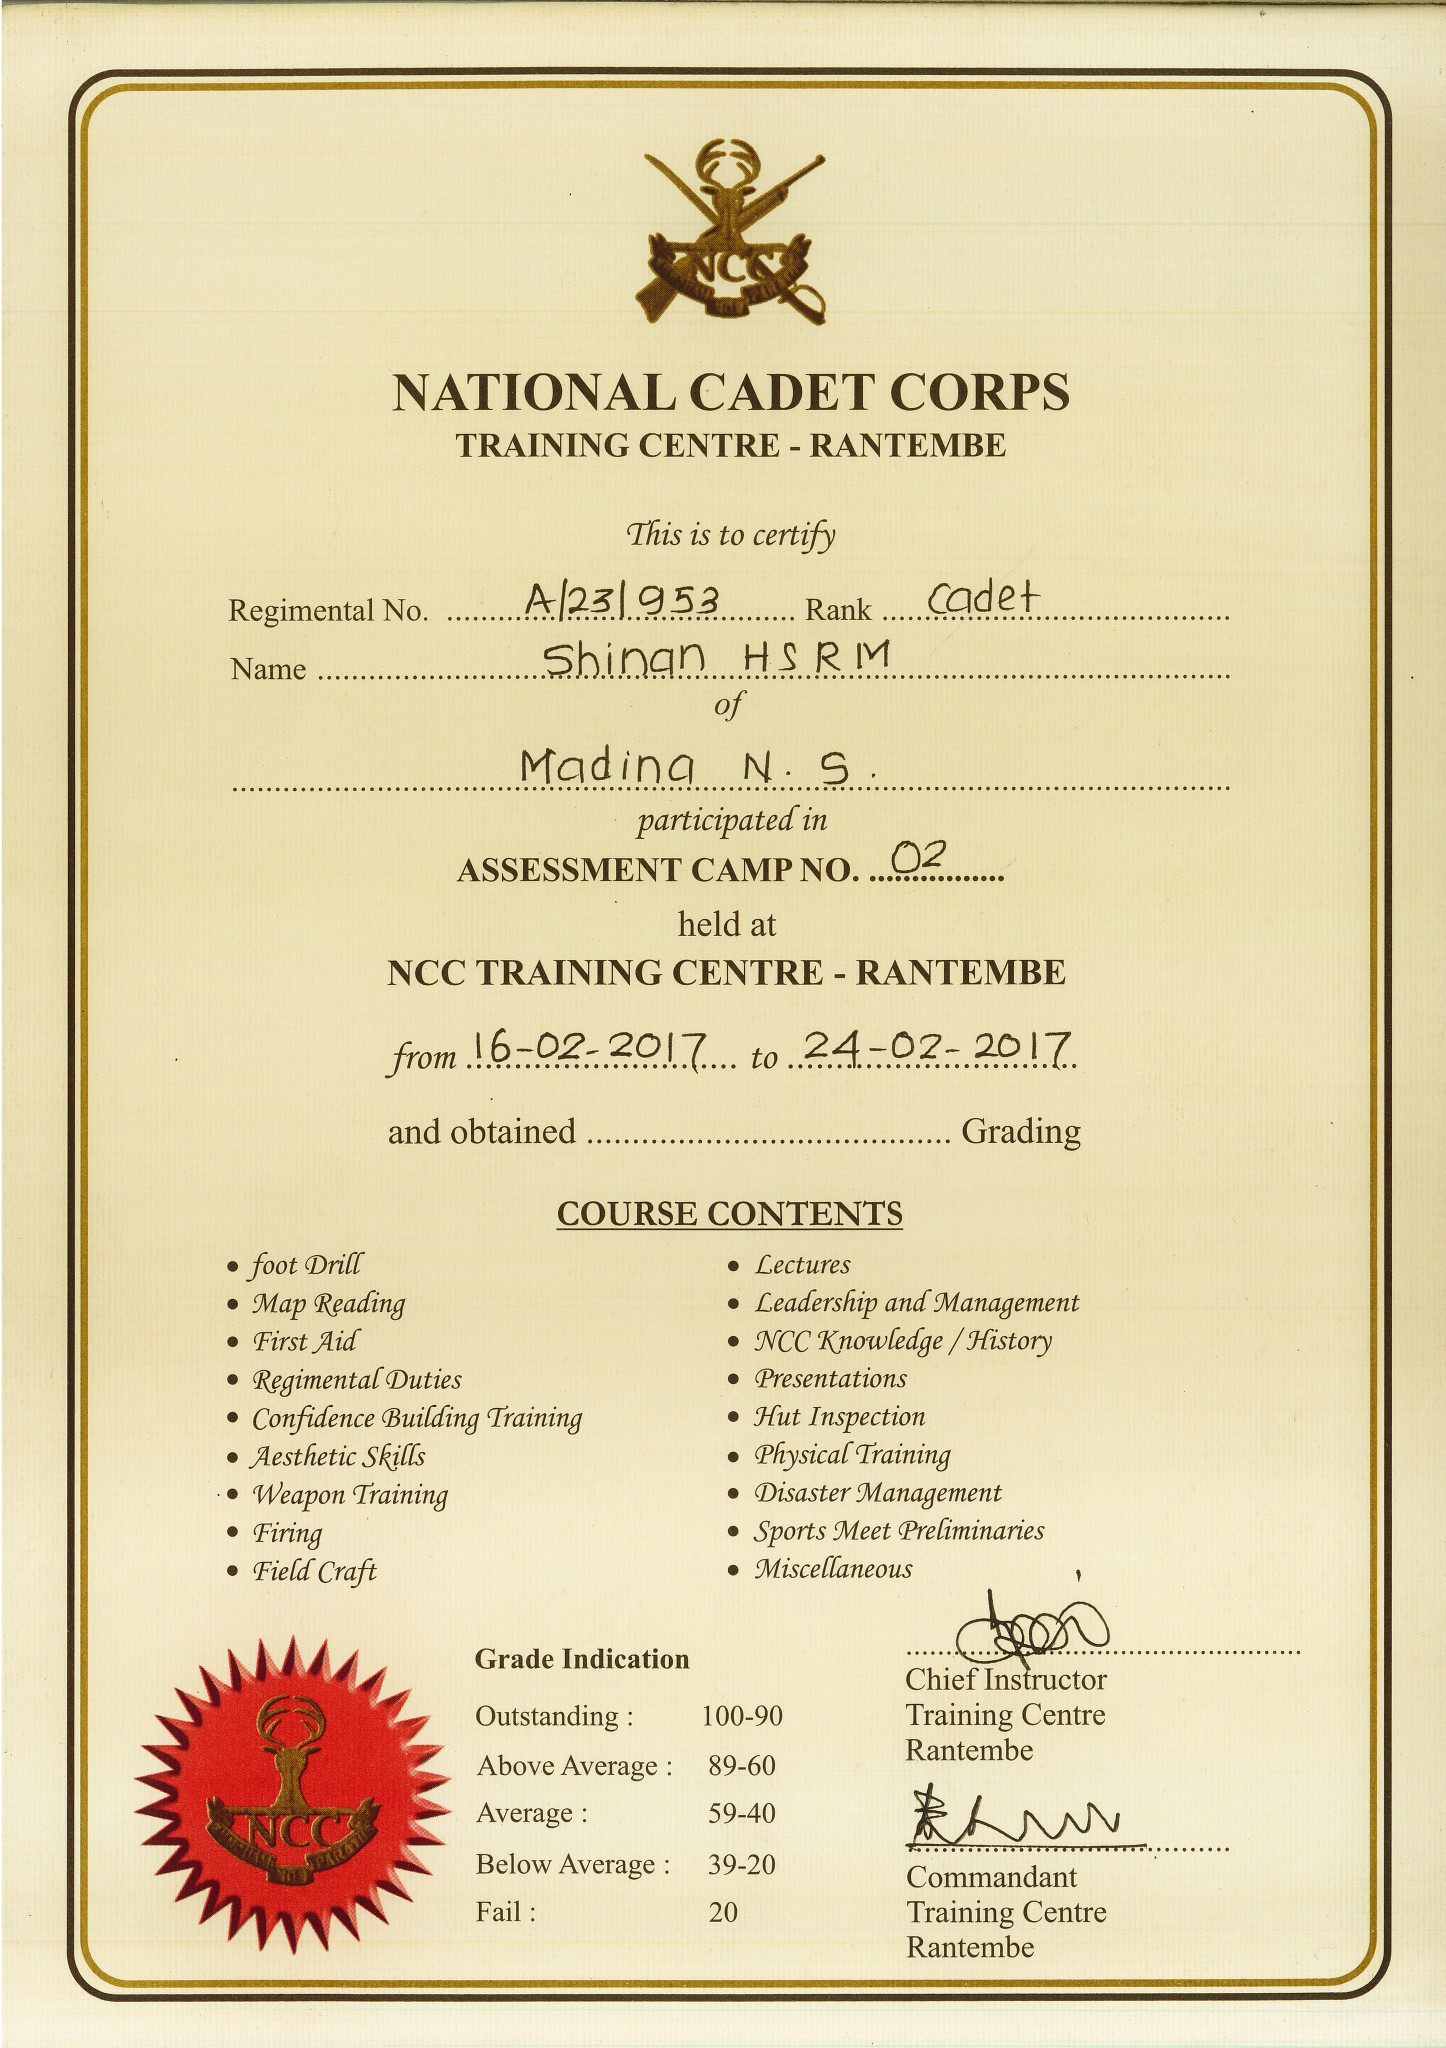 NCC
NATIONAL CADET CORPS
TRAINING CENTRE - RANTEMBE
This is to certify
Regimental No. .......... A/23/953 .......... Rank .......... Cadet ..........
Name .......... Shinan H S R M ..........
of
Madina N. S.
participated in
ASSESSMENT CAMP NO. 02
held at
NCC TRAINING CENTRE - RANTEMBE
from 16-02-2017 to 24-02-2017
and obtained .......... Grading
COURSE CONTENTS
• foot Drill
• Map Reading
• First Aid
• Regimental Duties
• Confidence Building Training
• Aesthetic Skills
• Weapon Training
• Firing
• Field Craft
• Lectures
• Leadership and Management
• NCC Knowledge / History
• Presentations
• Hut Inspection
• Physical Training
• Disaster Management
• Sports Meet Preliminaries
• Miscellaneous
NCC
Grade Indication
Outstanding : 100-90
Above Average : 89-60
Average : 59-40
Below Average : 39-20
Fail : 20
Chief Instructor
Training Centre
Rantembe
Commandant
Training Centre
Rantembe